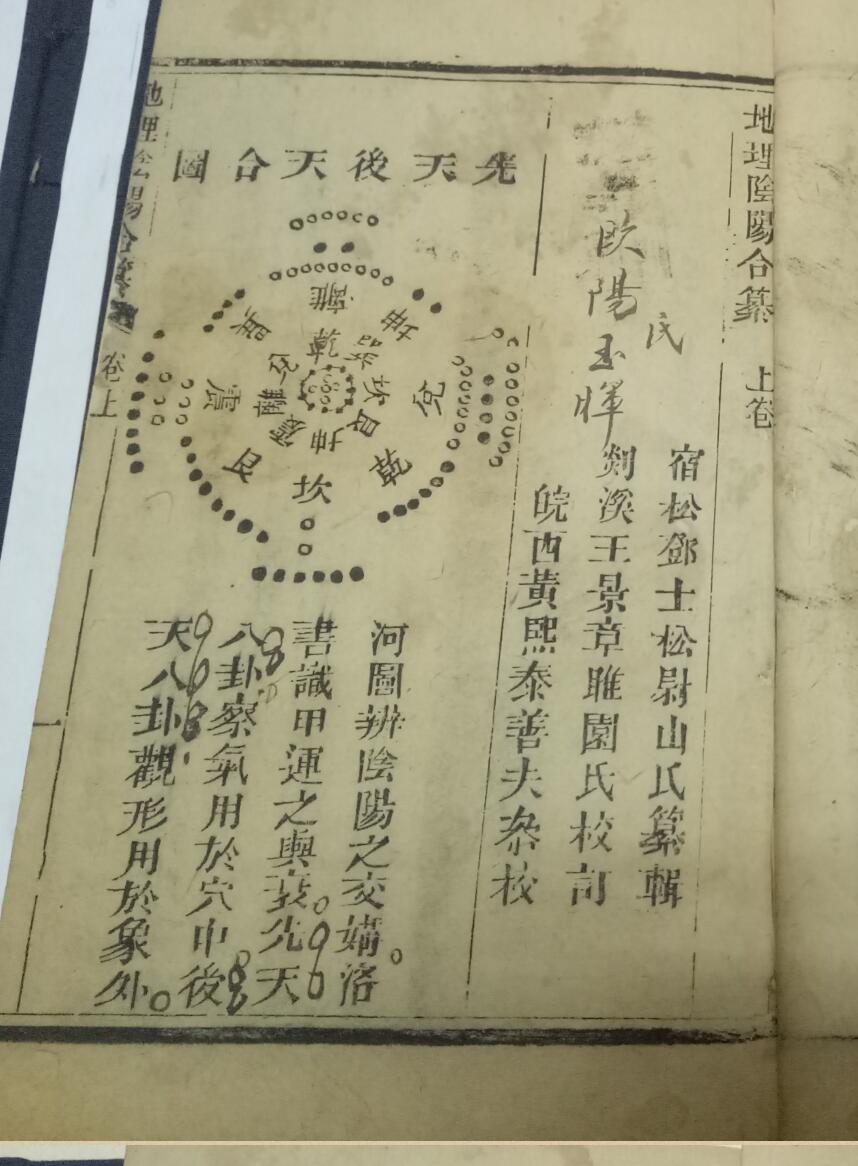 地理陰陽合纂 上卷
宿松鄧士松尉山氏纂輯
剡溪王景章雎園氏校訂
皖西黃熙泰善夫叅校
歐陽玉暉
氏
先天後天合圖
離
坤
兌
乾
坎
艮
震
巽
乾
巽
坎
艮
坤
震
離
兌
河圖辨陰陽之交媾洛
書識甲運之興衰先天
八卦察氣用於穴中後
天八卦觀形用於象外
地理陰陽合纂 卷上
一